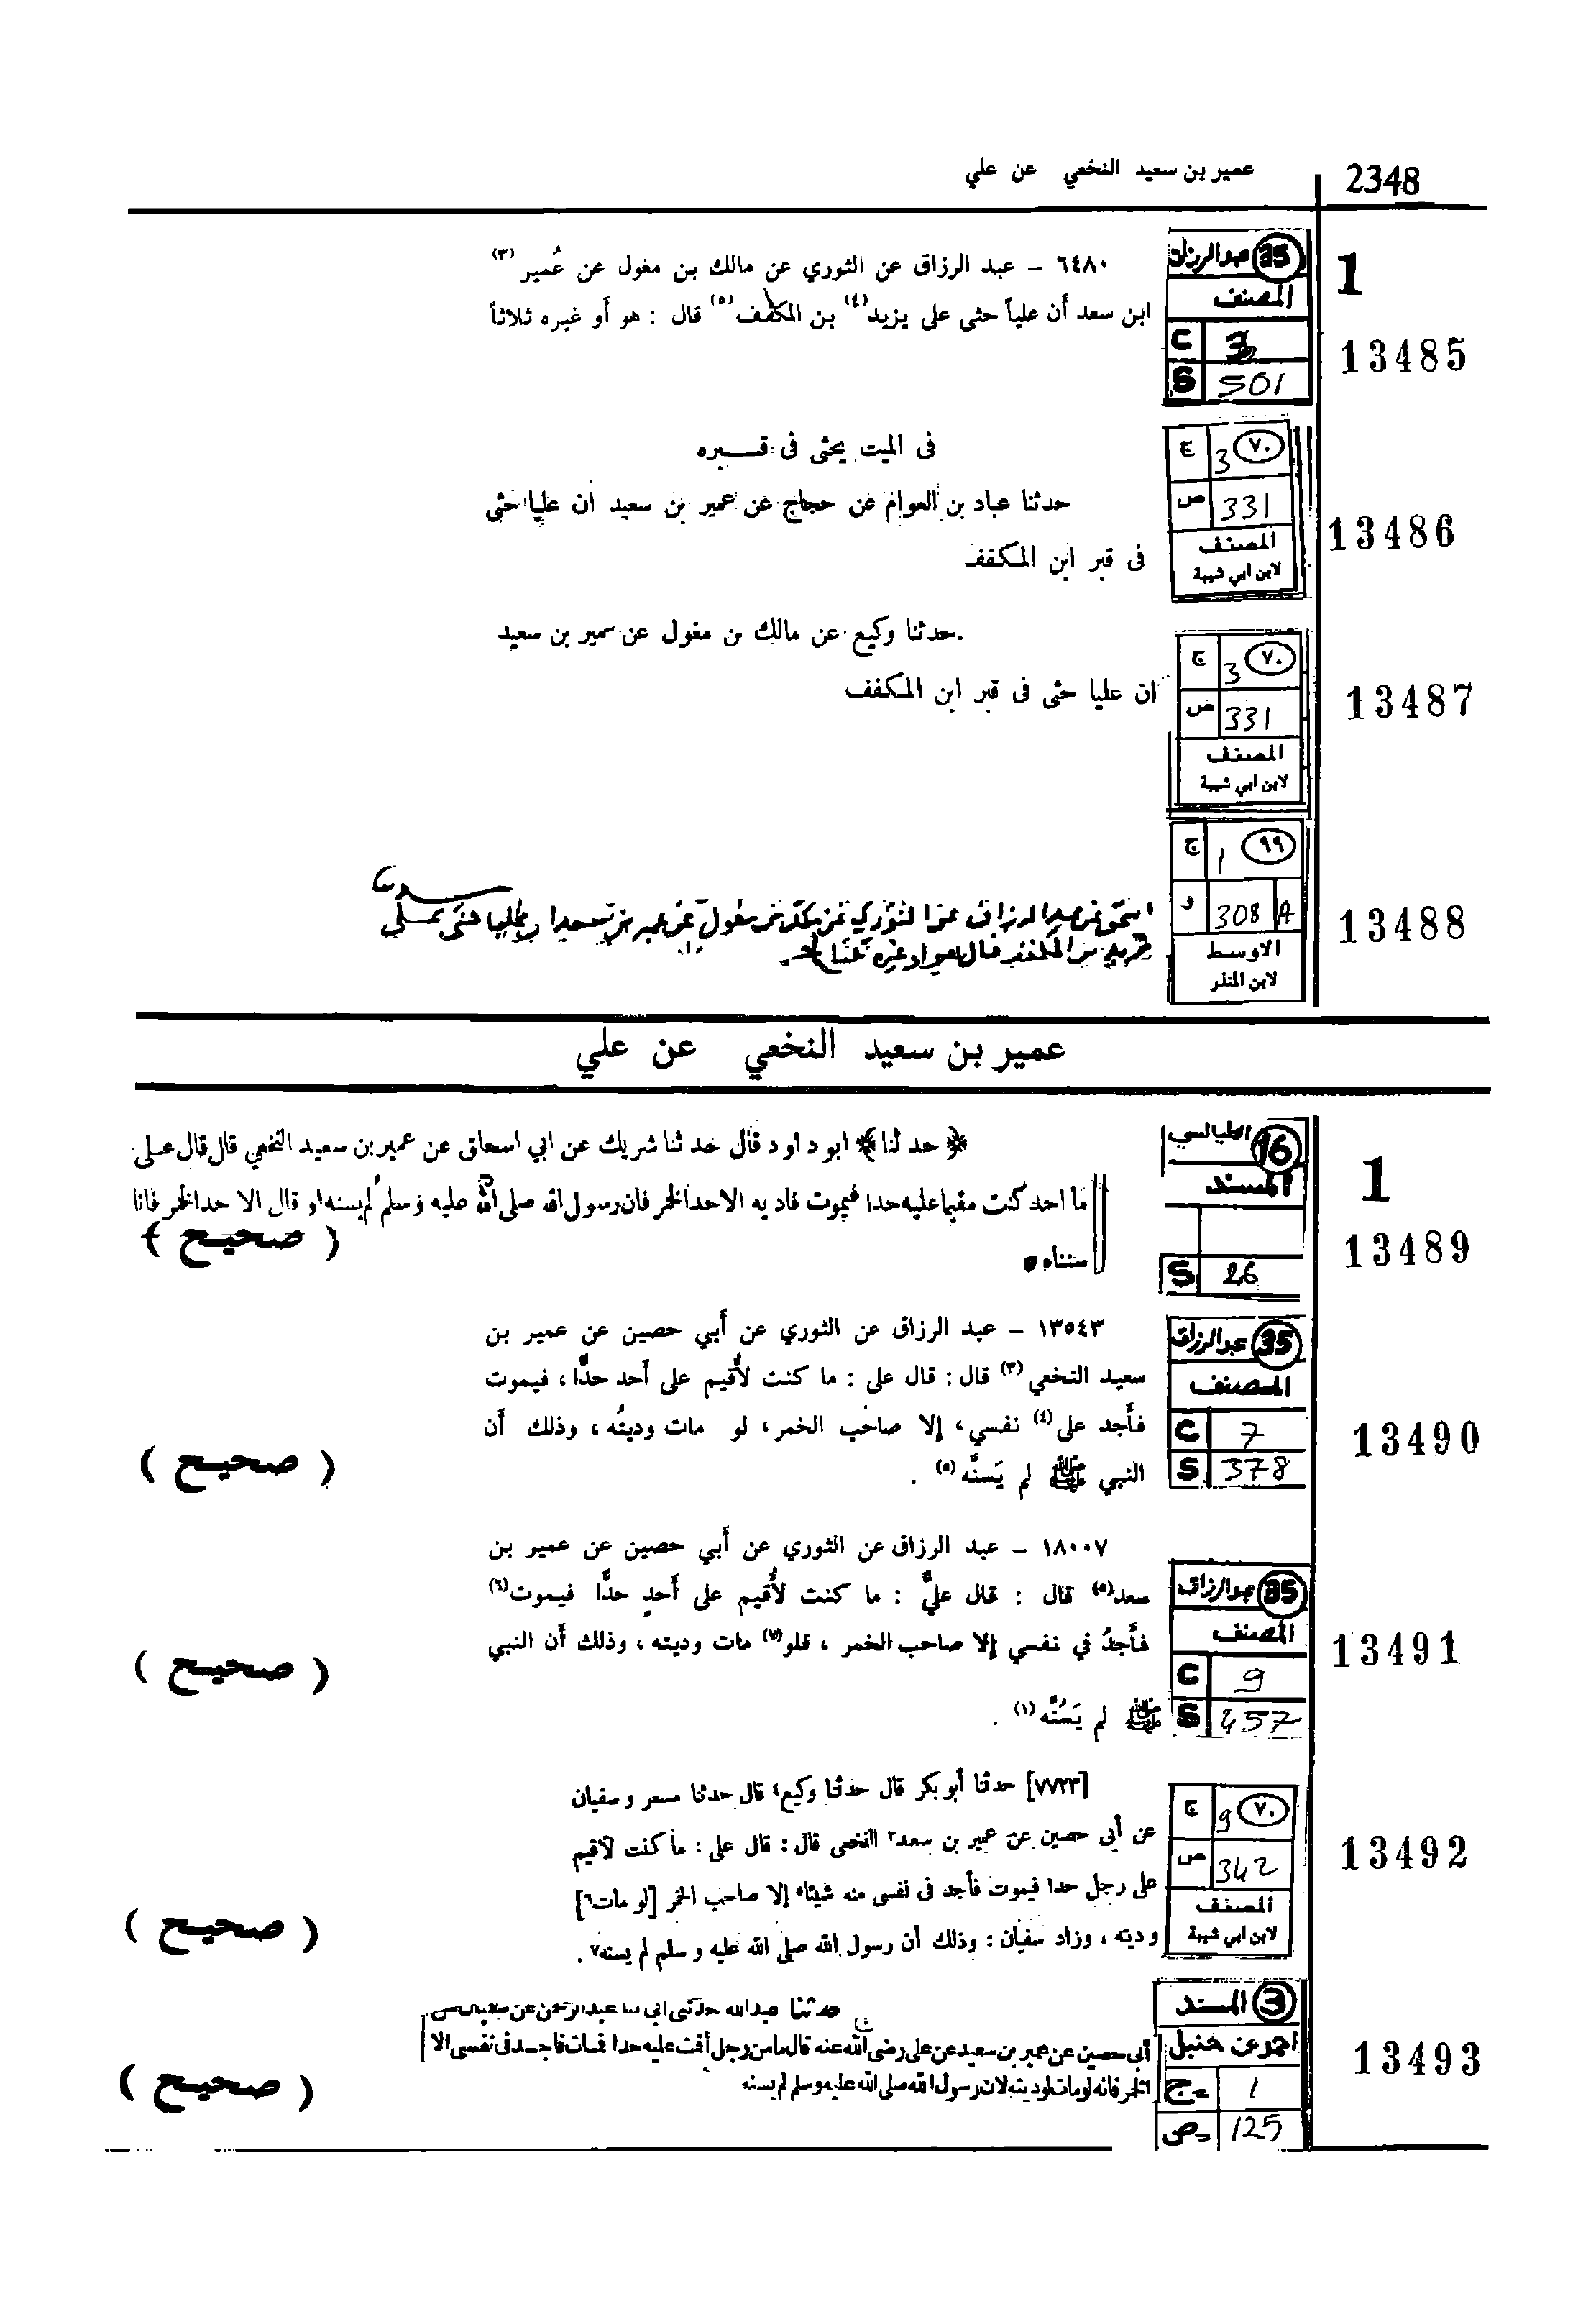 2348
عمير بن سعيد النخعي عن علي
1
13485
35 عبد الرزاق
المصنف
C 3
S 501
٦٤٨٠ – عبد الرزاق عن الثوري عن مالك بن مغول عن عُمير (٣)
ابن سعد أن علياً حثى على يزيد (٤) بن المكفف (٥) قال : هو أو غيره ثلاثاً
13486
ج 3 ٧٠
ص 331
المصنف
لابن ابي شيبة
فى الميت يحثى فى قبره
حدثنا عباد بن العوام عن حجاج عن عمير بن سعيد ان عليا حثى
فى قبر ابن المكفف
13487
ج 3 ٧٠
ص 331
المصنف
لابن ابي شيبة
حدثنا وكيع عن مالك بن مغول عن سمير بن سعيد
ان عليا حثى فى قبر ابن المكفف
13488
ج 1 ٩٩
و 308 A
الاوسط
لابن المنذر
عبد الرزاق عن الثوري
عمير بن سعيد النخعي عن علي
1
13489
16 الطيالسي
المسند
S 26
﴿ حدثنا ﴾ ابو داود قال حدثنا شريك عن ابي اسحاق عن عمير بن سعيد النخعي قال قال على
ما احد كنت مقيما عليه حدا فيموت فاديه الا حد الخمر فان رسول الله صلى الله عليه وسلم لم يسنه او قال الا حد الخمر فانا
سنناه
( صحيح )
13490
35 عبد الرزاق
المصنف
C 7
S 378
١٣٥٤٣ – عبد الرزاق عن الثوري عن أبي حصين عن عمير بن
سعيد النخعي (٣) قال : قال على : ما كنت لأُقيم على أحد حدًّا ، فيموت
فأجد على (٤) نفسي ، إلا صاحب الخمر ، لو مات وديتُه ، وذلك أن
النبي ﷺ لم يَسنَّه (٥) .
( صحيح )
13491
35 عبد الرزاق
المصنف
C 9
S 457
١٨٠٠٧ – عبد الرزاق عن الثوري عن أبي حصين عن عمير بن
سعد (٥) قال : قال عليٌّ : ما كنت لأُقيم على أحدٍ حدًّا فيموت (٦)
فأَجدُ في نفسي إلا صاحب الخمر ، فلو (٧) مات وديته ، وذلك أن النبي
ﷺ لم يَسُنَّه (١) .
( صحيح )
13492
ج 9 ٧٠
ص 342
المصنف
لابن ابي شيبة
[٧٧٢٣] حدثنا أبو بكر قال حدثنا وكيع ٤ قال حدثنا مسعر و سفيان
عن أبي حصين عن عمير بن سعد ٣ النخعى قال : قال على : ما كنت لأقيم
على رجل حدا فيموت فأجد فى نفسى منه شيئا ٥ إلا صاحب الخمر [لو مات ٦]
وديته ، وزاد سفيان : وذلك أن رسول الله صلى الله عليه و سلم لم يسنه ٧ .
( صحيح )
13493
3 المسند
احمد بن حنبل
ج 1
ص 125
حدثنا عبد الله حدثنى ابى ثنا عبد الرحمن عن سفيان عن
أبى حصين عن عمير بن سعيد عن على رضى الله عنه قال ما من رجل أقمت عليه حدا فمات فاجد فى نفسى الا
الخمر فانه لو مات لوديته لان رسول الله صلى الله عليه وسلم لم يسنه
( صحيح )